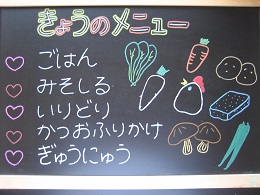 きょうのメニュー
ごはん
みそしる
いりどり
かつおふりかけ
ぎゅうにゅう